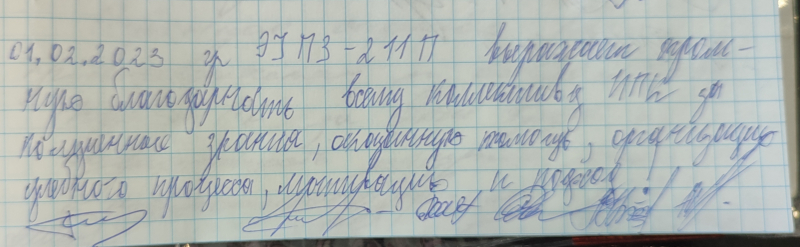 01.02.2023 гр ЭТПЗ-211П выражает огром-
ную благодарность всему коллективу ИПК за
полученные знания, оказанную помощь, организацию
учебного процесса, мотивацию и подход